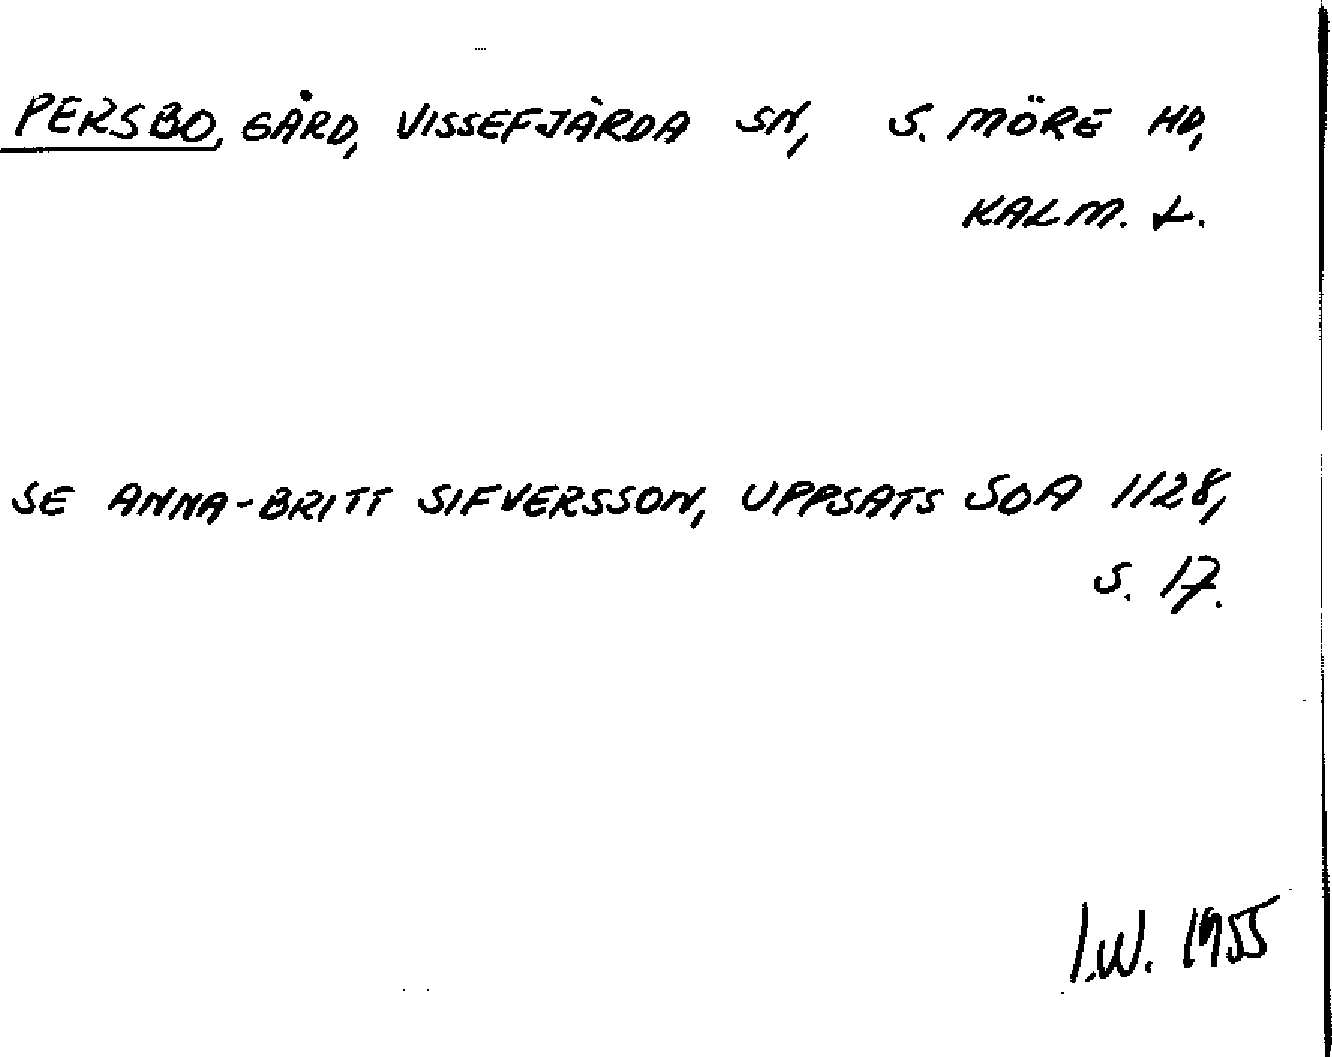 PERSBO, GÅRD, VISSEFJÄRDA SN, S. MÖRE HD,
KALM. L.
SE ANNA-BRITT SIFVERSSON, UPPSATS SOA 1128,
S. 17.
I.W. 1955